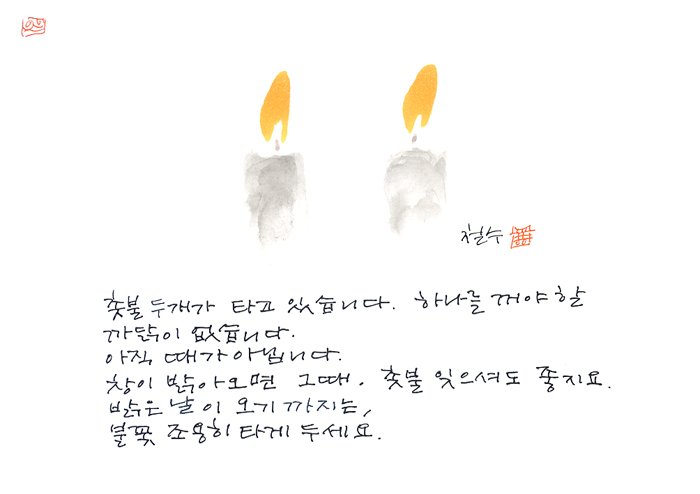 철수
촛불 두개가 타고 있습니다. 하나를 꺼야 할
까닭이 없습니다.
아직 때가 아닙니다.
창이 밝아오면 그때. 촛불 잊으셔도 좋지요.
밝은 날이 오기 까지는,
불꽃 조용히 타게 두세요.